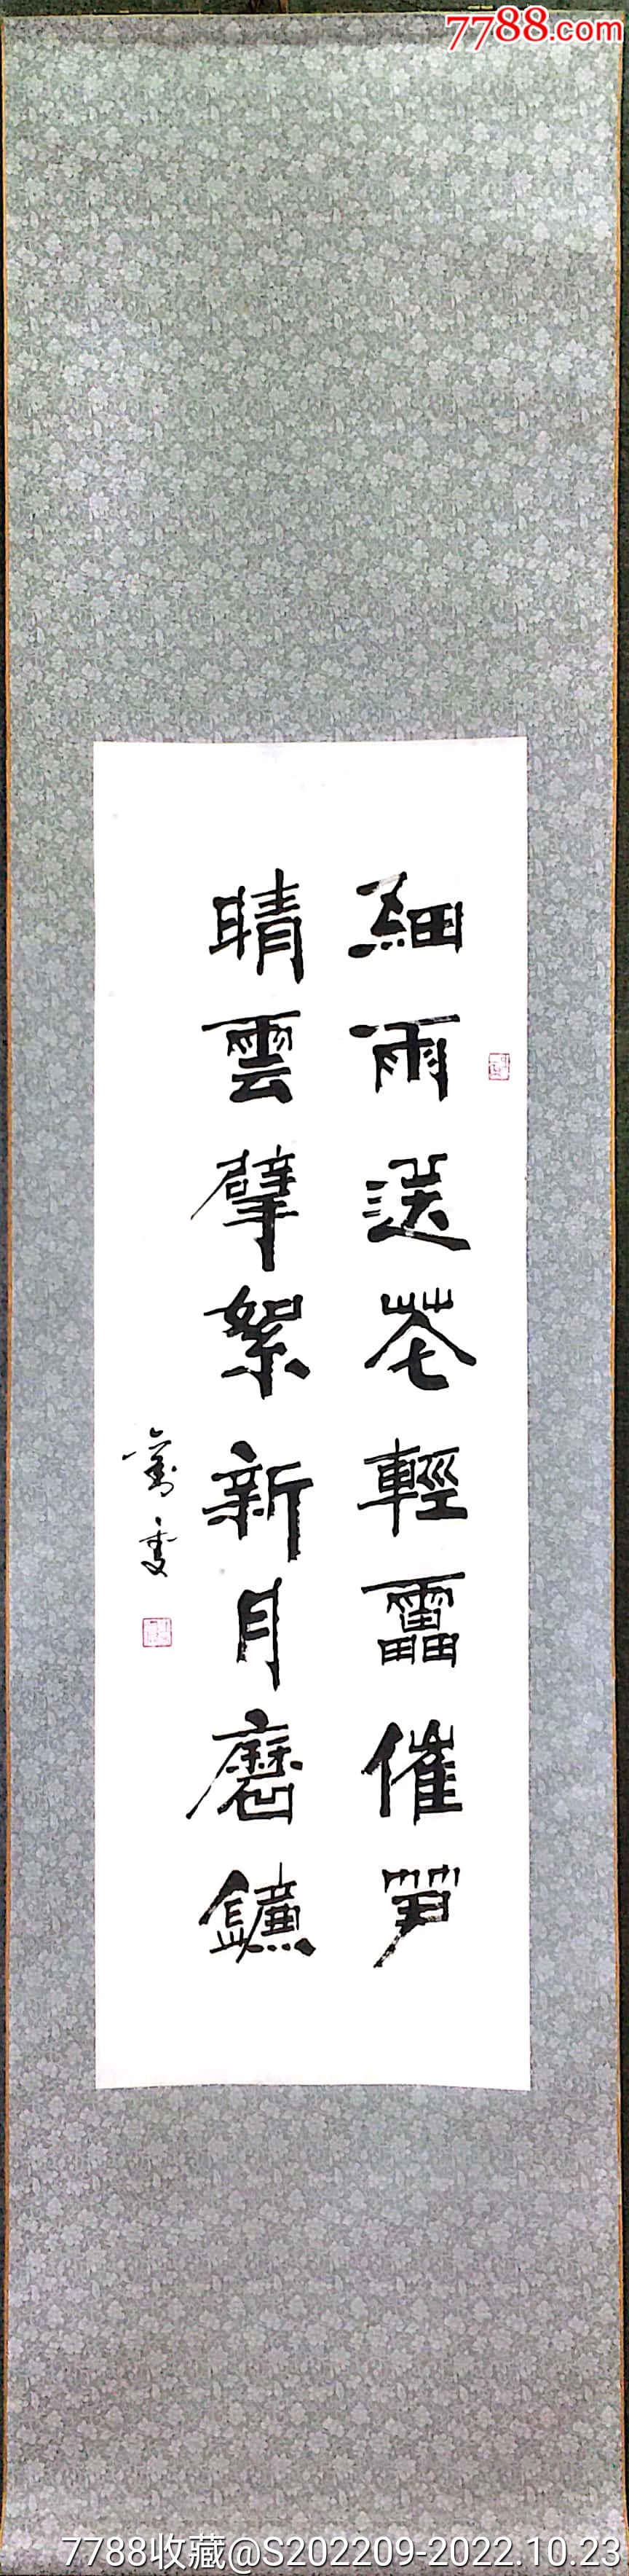 7788.com
細雨送花輕靁催筍
晴雲擘絮新月磨鐮
7788收藏@S202209-2022.10.23